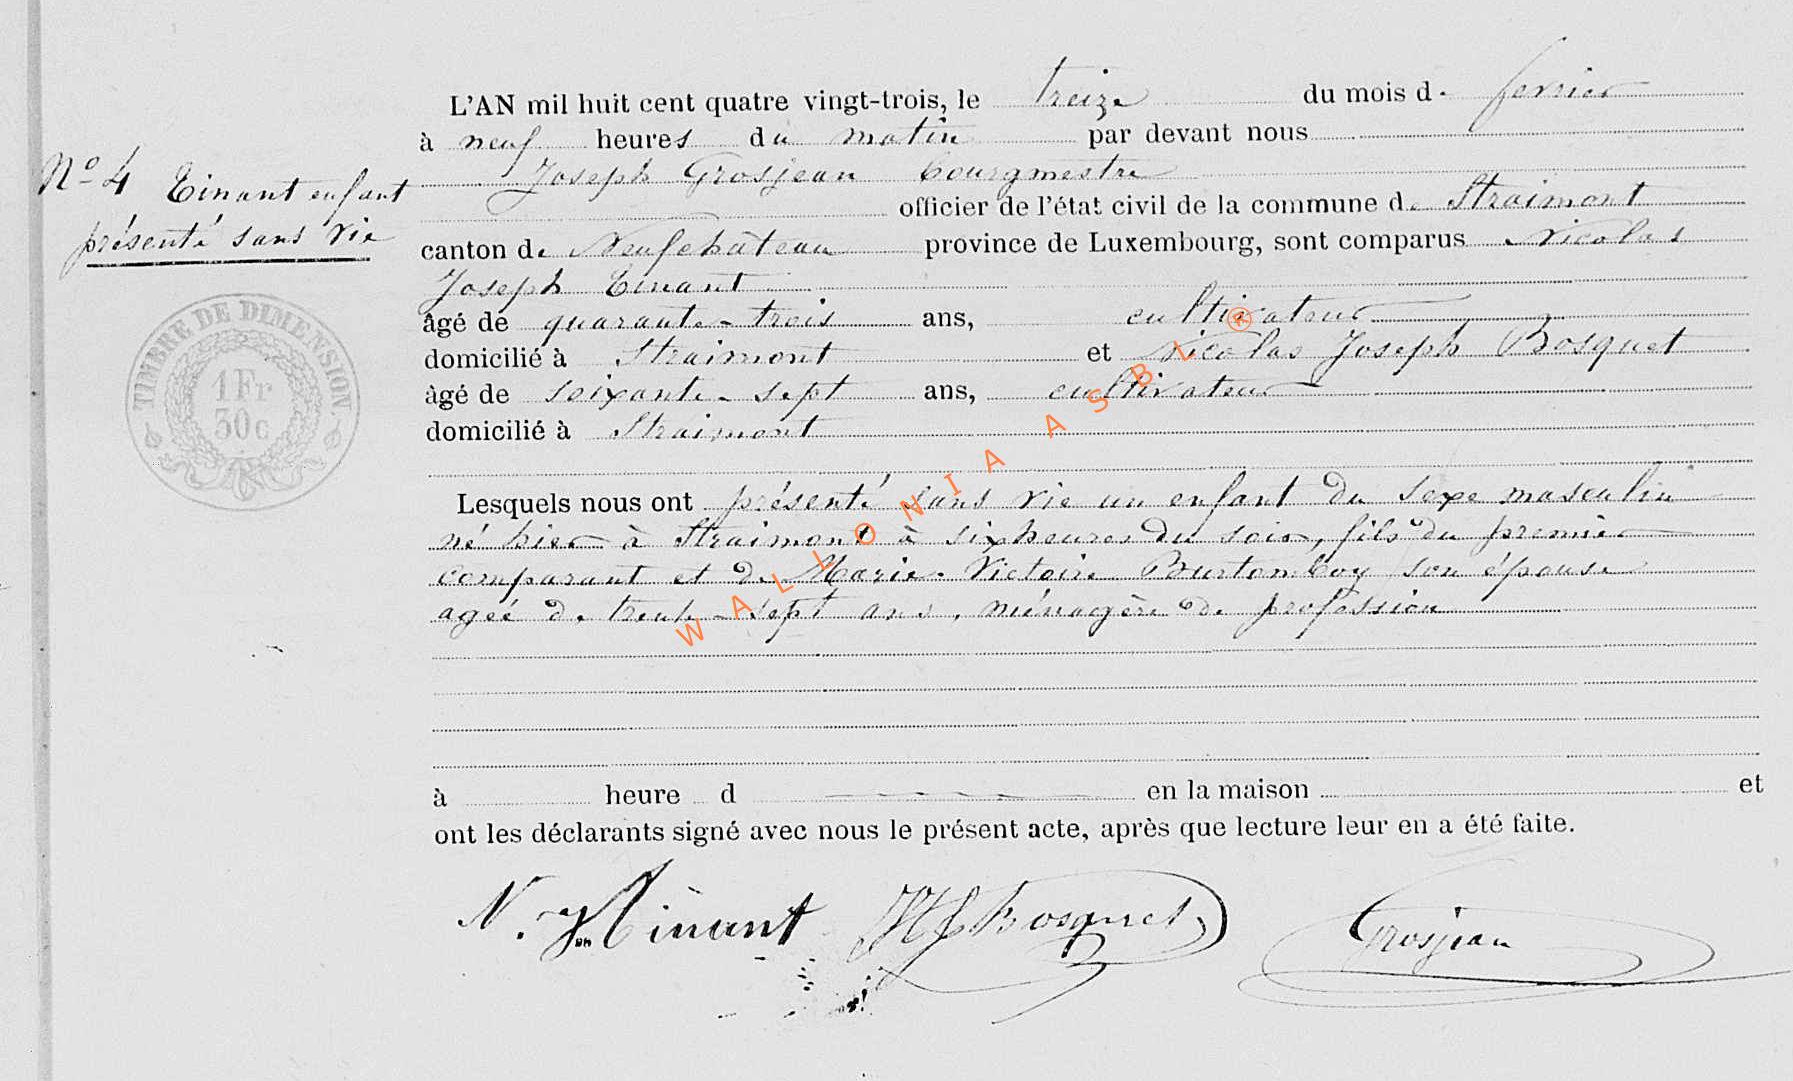 L'AN mil huit cent quatre vingt-trois, le treize du mois de fevrier
à neuf heures du matin par devant nous
Joseph Grosjean bourgmestre
officier de l'état civil de la commune de Straimont
canton de Neufchâteau province de Luxembourg, sont comparus Nicolas
Joseph Tinant
âgé de quarante-trois ans, cultivateur
domicilié à Straimont et Nicolas Joseph Bosquet
âgé de soixante-sept ans, cultivateur
domicilié à Straimont
Lesquels nous ont présenté sans vie un enfant du sexe masculin
né hier à Straimont à six heures du soir, fils du premier
comparant et de Marie-Victoire Burtomboy son épouse
ageé de trente-sept ans, ménagère de profession
à heure d en la maison et
ont les déclarants signé avec nous le présent acte, après que lecture leur en a été faite.
N. Jph Tinant NJ Bosquet Grosjean
N° 4 Tinant enfant
présenté sans vie
TIMBRE DE DIMENSION.
1 Fr
30 c
WALLONIA ASBL ®